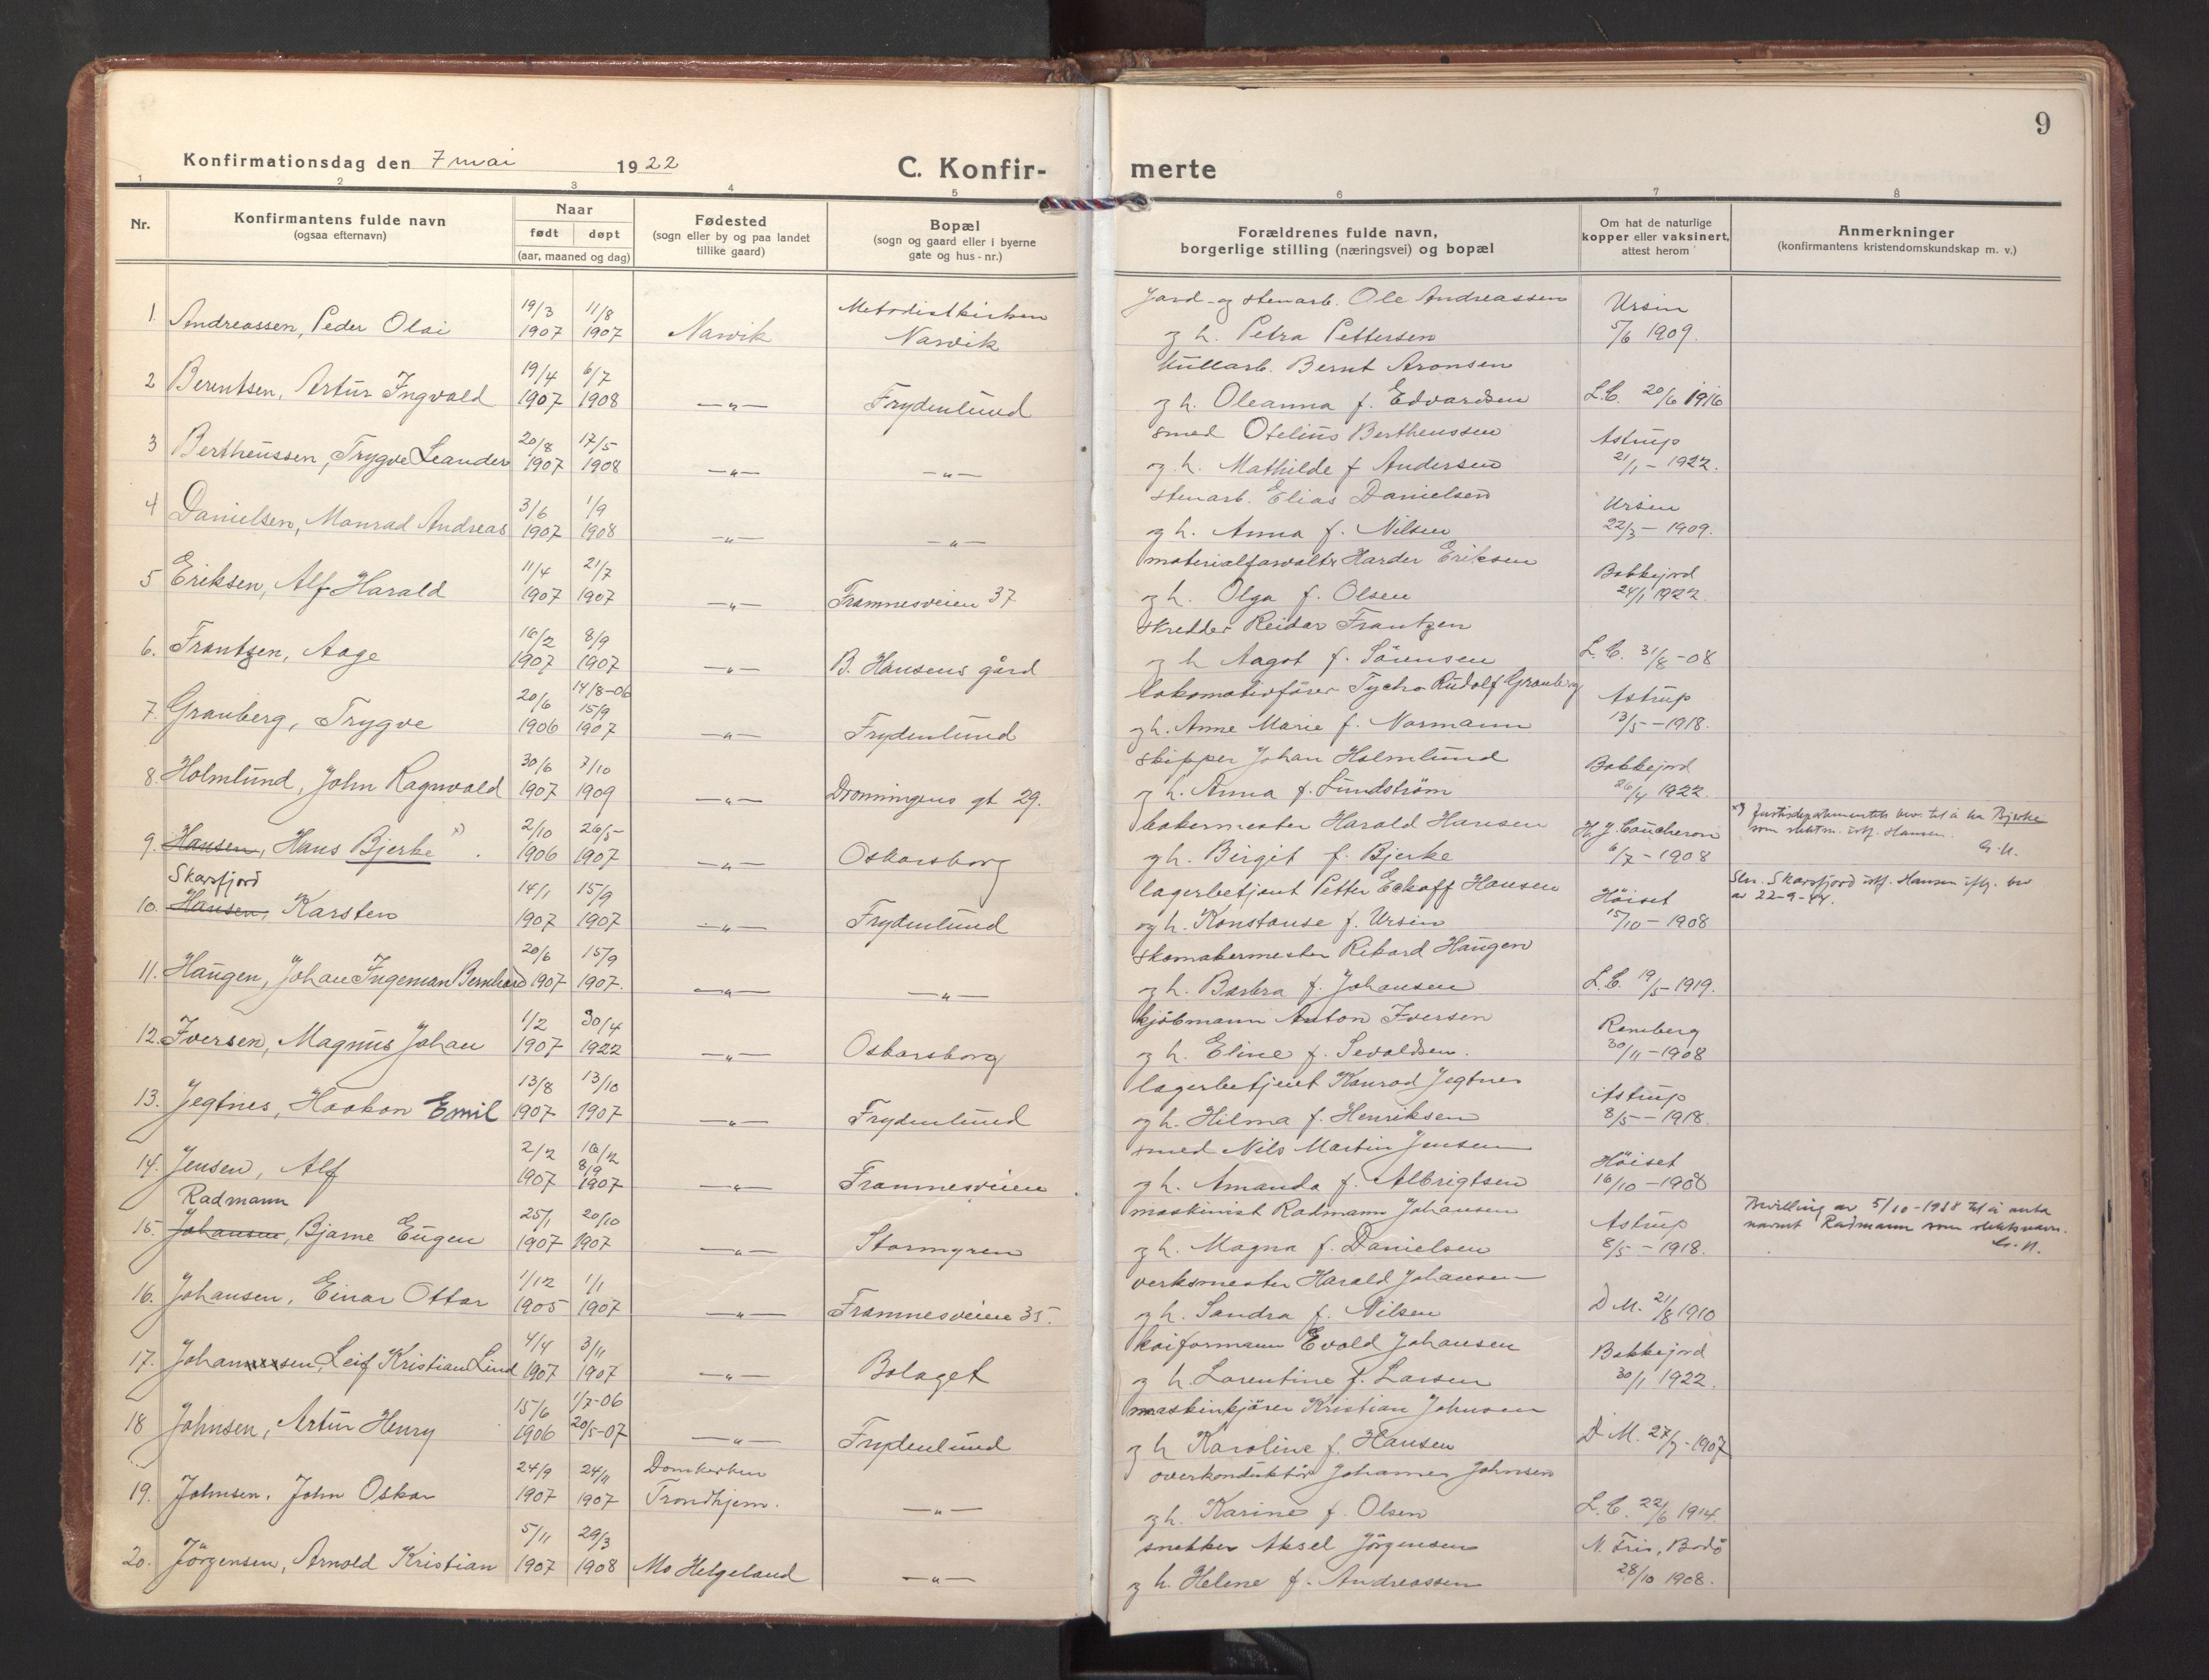 9
Konfirmationsdag den 7 mai 1922
C. Konfir-
merte
1 2 3 4 5 6 7 8
Nr.
Konfirmantens fulde navn
(ogsaa efternavn)
Naar
født døpt
(aar, maaned og dag)
Fødested
(sogn eller by og paa landet
tillike gaard)
Bopæl
(sogn og gaard eller i byerne
gate og hus-nr.)
Forældrenes fulde navn,
borgerlige stilling (næringsvei) og bopæl
Om hat de naturlige
kopper eller vaksinert,
attest herom
Anmerkninger
(konfirmantens kristendomskundskap m. v.)
19/3 11/8 Metodistkirken Jord- og stenarb. Ole Andreassen Ursin
1. Andreassen, Peder Olai 1907 1907 Narvik Narvik og h. Petra Pettersen 5/6 1909.
19/4 6/7 kullarb. Bernt Aronsen
2 Berentsen, Artur Ingvald 1907 1908 —„— Frydenlund og h. Oleanna f. Edvardsen L.C. 20/6 1916
20/8 17/5 smed Otelius Bertheussen Astrup
3 Bertheussen, Trygve Leander 1907 1908 —„— —„— og h. Mathilde f Andersen 21/1 - 1922.
3/6 1/9 stenarb. Elias Danielsen Ursin
4 Danielsen, Monrad Andreas 1907 1908 —„— —„— og h. Anna f. Nilsen 22/3 - 1909.
11/4 21/7 materialforvalter Harder Eriksen Bakkejord
5 Eriksen, Alf Harald 1907 1907 —„— Framnesveien 37 og h. Olga f. Olsen 24/1 1922.
16/2 8/9 skredder Reidar Frantzen
6. Frantzen, Aage 1907 1907 —„— B. Hansens gård og h Aagot f. Sörensen L.C. 31/8 -08
20/6 14/8-06 15/9 lokomotivförer Tycho Rudolf Granberg Astrup
7. Granberg, Trygve 1906 1907 —„— Frydenlund og h. Anne Marie f. Normann 13/5 - 1918.
30/6 7/10 skipper Johan Holmlund Bakkejord
8. Holmlund, John Ragnvald 1907 1909 —„— Dronningens gt 29. og h. Anna f. Lundström 26/4 1922.
2/10 26/5 bakermester Harald Hansen H.J. Coucheron x) Justisdepartementets bev. til å ha Bjerke
9. Hansen, Hans Bjerke x). 1906 1907 —„— Oskarsborg og h. Birgit f. Bjerke 6/7 - 1908 som slektsn. istf. Hansen.
G.N.
Skarsfjord 14/1 15/9 lagerbetjent Petter Eckoff Hansen Höiset Sln. Skarsfjord istf. Hansen iflg. bev
10. Hansen, Karsten 1907 1907 —„— Frydenlund og h. Konstanse f. Ursin 15/10 - 1908 av 22-9-44.
20/6 15/9 skomakermester Rikard Haugen
11. Haugen, Johan Ingeman Bernhard 1907 1907. —„— —„— og h. Barbra f. Johansen L.C. 19/5 - 1919.
1/2 30/4 kjöbmann Anton Iversen Remberg
12. Iversen, Magnus Johan 1907 1922 —„— Oskarsborg og h. Eline f. Sevaldsen. 30/11 - 1908
13/8 13/10 lagerbetjent Konrad Jegtnes Astrup
13. Jegtnes, Haakon Emil 1907 1907 —„— Frydenlund og h. Hilma f. Henriksen 8/5 - 1918.
2/2 16/2 8/9 smed Nils Martin Jensen Höiset
14. Jensen, Alf 1907 1907 —„— Framnesveien og h. Amanda f. Albrigtsen 16/10 - 1908
Radmann 25/1 20/10 maskinist Radmann Johansen Astrup Bevilling av 5/10-1938 til å anta
15. Johansen, Bjarne Eugen 1907 1907 —„— Stormyren og h. Magna f. Danielsen 8/5 - 1918. navnet Radmann som slektsnavn.
G.N.
1/12 1/1 verksmester Harald Johansen
16. Johansen, Einar Ottar 1905 1907 —„— Framnesveien 35. og h. Sandra f. Nilsen D M. 21/8 1910
4/4 3/11 kaiformann Evald Johansen Bakkejord
17. Johansen, Leif Kristian Lind 1907 1907 —„— Bolaget og h. Lorentine f. Larsen 30/1 1922.
15/6 1/7-06 maskinkjörer Kristian Johnsen
18 Johnsen, Artur Henry 1906 20/5-07 —„— Frydenlund og h Karoline f. Hansen D M. 27/7 - 1907
24/9 24/11 Domkirken overkonduktör Johannes Johnsen
19. Johnsen, John Oskar 1907 1907 Trondhjem. —„— og h. Karine f. Olsen L.C. 22/6 1914
5/11 29/3 snekker Aksel Jörgensen N. Friis, Bodö
20. Jörgensen, Arnold Kristian 1907 1908 Mo Helgeland —„— og h. Helene f. Andreassen 28/10 1908.